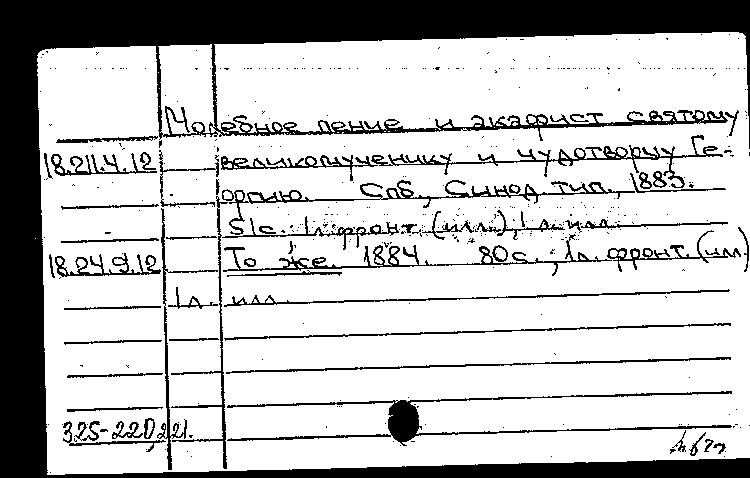 Молебное пение и акафист святому
18.211.4.12 великомученику и чудотворцу Ге-
оргию. Спб., Синод. тип., 1883.
51с. 1л. фронт. (илл.), 1 л. илл.
18.24.9.12 То же. 1884. 80с.; 1л. фронт. (илл)
1л. илл.
325-220,221.